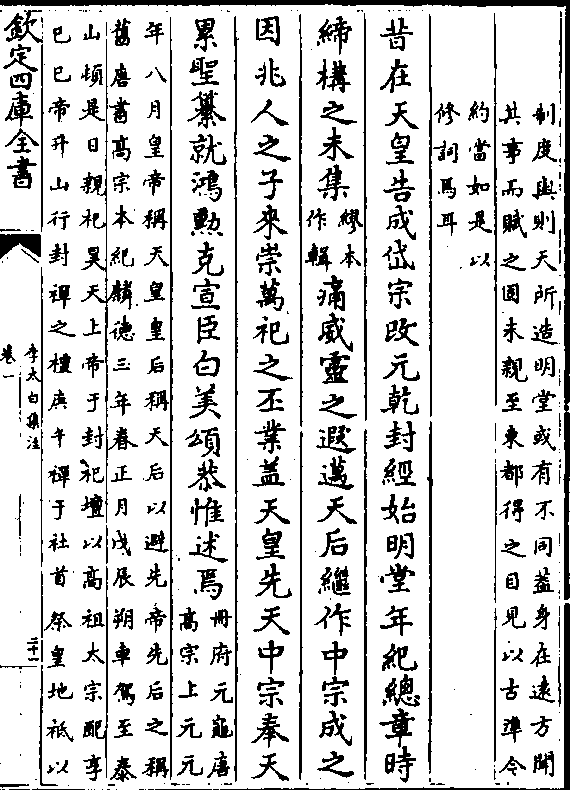 制度與則天所造明堂或有不同蓋身在遠方聞
其事而賦之固未親至東都得之目見以古準今
約當如是以
修詞焉耳
昔在天皇告成岱宗改元乾封經始明堂年紀總章時
締構之未集繆本
作輯痛威靈之遐邁天后繼作中宗成之
因兆人之子來崇萬祀之丕業蓋天皇先天中宗奉天
累聖纂就鴻勳克宣臣白美頌恭惟述焉冊府元龜唐
高宗上元元
年八月皇帝稱天皇皇后稱天后以避先帝先后之稱
舊唐書高宗本紀麟德三年春正月戊辰朔車駕至泰
山頓是日親祀昊天上帝于封祀壇以高祖太宗配享
己巳帝升山行封禪之禮庚午禪于社首祭皇地祗以
欽定四庫全書
李太白集注
卷一
二十一